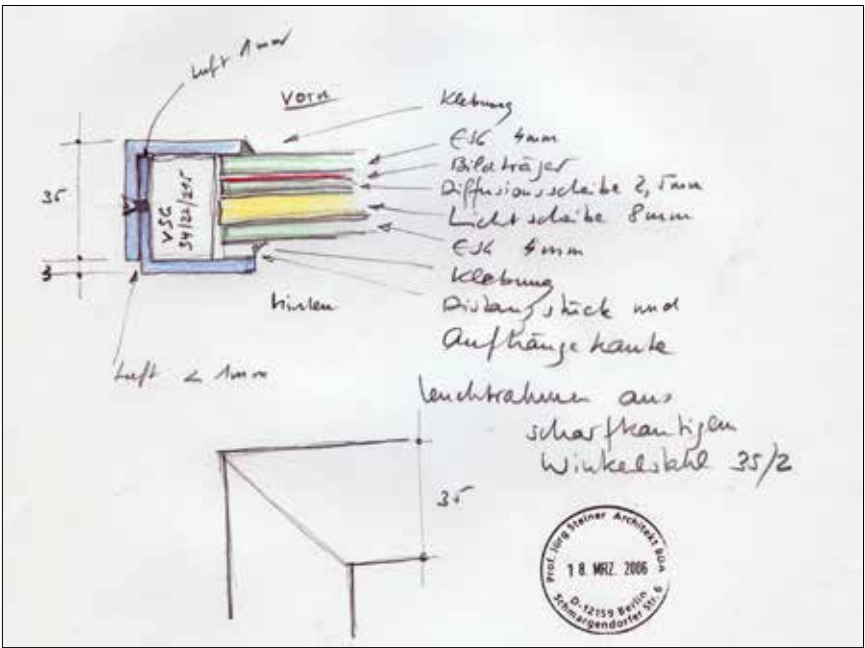 Luft 1mm
vorn
Klebung
ESG 4mm
Bildträger
Diffusionsscheibe 2,5mm
Lichtscheibe 8mm
ESG 4mm
Klebung
Distanzstück und
Aufhängekante
35
3
VSG
hinten
Luft < 1mm
Leuchtrahmen aus
scharfkantigem
Winkelstahl 35/2
35
Prof. Jörg Steiner Architekt BDA
18. MRZ. 2006
D-12159 Berlin
Schmargendorfer Str. 6